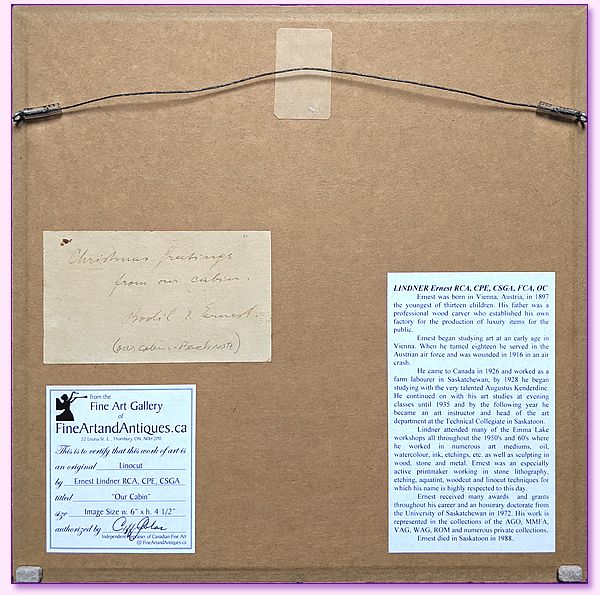 Christmas Greetings
from our cabin.
Bodil & Ernest.
(our cabin -
from the
Fine Art Gallery
of
FineArtandAntiques.ca
22 Louisa St. E., Thornbury, ON, N0H 2P0
This is to certify that this work of art is
an original Linocut
by Ernest Lindner RCA, CPE, CSGA
titled "Our Cabin"
size Image Size w. 6" x h. 4 1/2"
authorized by
Independent Appraiser of Canadian Fine Art
@ FineArtandAntiques.ca
LINDNER Ernest RCA, CPE, CSGA, FCA, OC
Ernest was born in Vienna, Austria, in 1897
the youngest of thirteen children. His father was a
professional wood carver who established his own
factory for the production of luxury items for the
public.
Ernest began studying art at an early age in
Vienna. When he turned eighteen he served in the
Austrian air force and was wounded in 1916 in an air
crash.
He came to Canada in 1926 and worked as a
farm labourer in Saskatchewan, by 1928 he began
studying with the very talented Augustus Kenderdine.
He continued on with his art studies at evening
classes until 1935 and by the following year he
became an art instructor and head of the art
department at the Technical Collegiate in Saskatoon.
Lindner attended many of the Emma Lake
workshops all throughout the 1950's and 60's where
he worked in numerous art mediums, oil,
watercolour, ink, etchings, etc. as well as sculpting in
wood, stone and metal. Ernest was an especially
active printmaker working in stone lithography,
etching, aquatint, woodcut and linocut techniques for
which his name is highly respected to this day.
Ernest received many awards and grants
throughout his career and an honorary doctorate from
the University of Saskatchewan in 1972. His work is
represented in the collections of the AGO, MMFA,
VAG, WAG, ROM and numerous private collections.
Ernest died in Saskatoon in 1988.